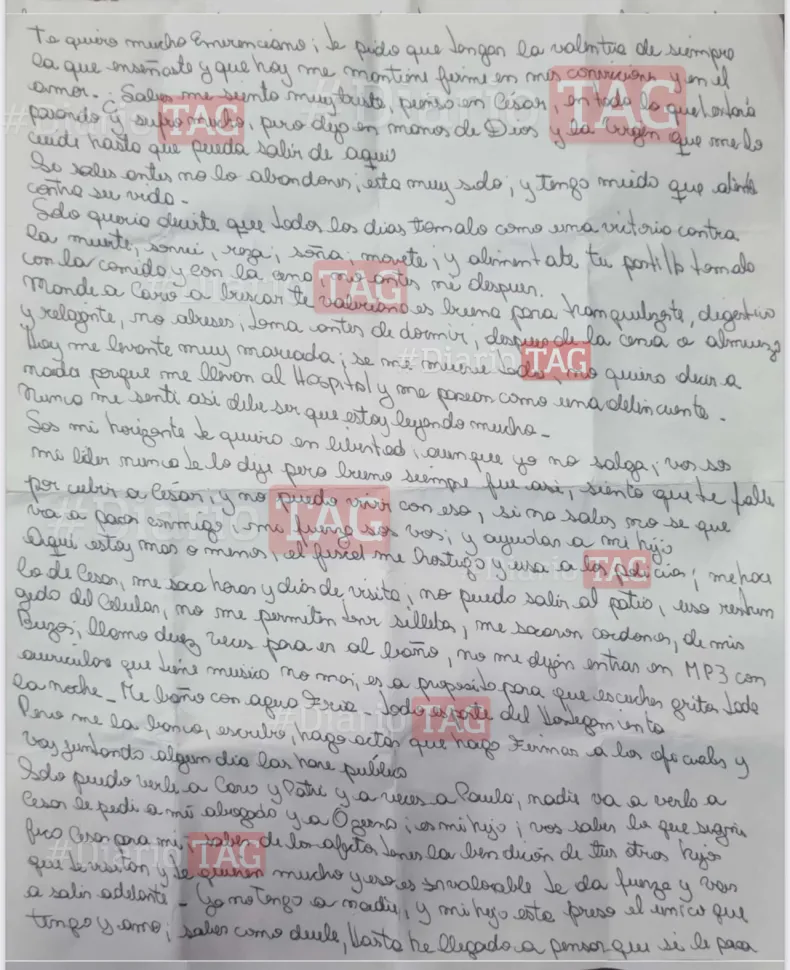 Te quiero mucho Emerenciano; te pido que tengas la valentia de siempre
la que enseñaste y que hoy me mantiene firme en mis convicciones y en el
amor. ¡Sabes me siento muy triste, pienso en César, en todo lo que estará
pasando y sufro mucho, pero dejo en manos de Dios y la Virgen que me lo
cuide hasta que pueda salir de aqui
So sales antes no lo abandones, esta muy solo; y tengo miedo que atente
contra su vida.-
Solo queria decirte que todos los dias tomalo como una vitoria contra
la muerte, sonrei, reza, soña, movete; y alimentate tu pastilla tomalo
con la comida y con la cena, no antes ni despues.
Mande a Caro a buscar te valeriana es buena para tranquilizarte, digestivo
y relajante, no abuses, toma antes de dormir, despues de la cena o almuerzo
Hoy me levante muy mareada; se me mueve todo, no quiero decir a
nada porque me llevan al Hospital y me pasean como una delincuente.
Nunca me senti asi debe ser que estoy leyendo mucho.-
Sos mi horizonte te quiero en libertad, aunque yo no salga, vos sos
mi lider nunca te lo dije pero bueno siempre fue asi, siento que te falle
por cubrir a César, y no puedo vivir con eso, si no salis no se que
va a pasar conmigo, mi fuerza sos vos; y ayudas a mi hijo
Aqui estoy mas o menos, el fiscal me hostiga y usa a los policias; me hace
lo de Cesar, me saca horas y dias de visita, no puedo salir al patio, uso restrin
gido del Celular, no me permiten tener silletas, me sacaron cordones, de mis
Buzos, llamo diez veces para ir al baño, no me dejan entrar en MP3 con
auriculares que tiene musica no mas, es a proposito para que escuches gritos toda
la noche - Me baño con agua Fria - todo es parte del Hostigamiento
Pero me la banco, escribo, hago actas que hago Firmar a los oficiales y
voy juntando algun dia las hare publico
Solo puedo verle a Caro y Patri y a veces a Paula, nadie va a verlo a
Cesar le pedi a mi abogado y a Ozerna; es mi hijo; vos sabes lo que signi
fica Cesar para mi, sabes de los afectos tenes la bendición de tus otros hijos
que te visitan y te quieren mucho y eso es invalorable te da fuerza y vas
a salir adelante - Yo no tengo a nadie, y mi hijo esta preso el unico que
tengo y amo; sabes como duele, Hasta he llegado a pensar que si le pasa
#DiarioTAG
#DiarioTAG
#DiarioTAG
#DiarioTAG
#DiarioTAG
#DiarioTAG
#DiarioTAG
#DiarioTAG